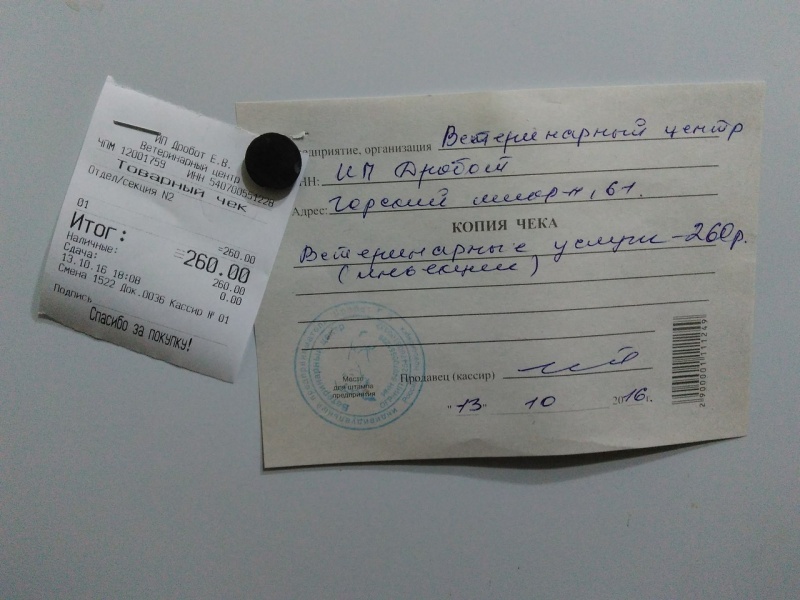 ИП Дробот Е.В.
Ветеринарный центр
ЧПМ 12001759 ИНН 540700551228
Товарный чек
Отдел/секция N2
01 =260.00
Итог: =260.00
Наличные: 260.00
Сдача: 0.00
13.10.16 18:08
Смена 1522 Док.0036 Кассир № 01
Подпись
Спасибо за покупку!
едприятие, организация Ветеринарный центр
НН: ИП Дробот
Адрес: Горский мкр-н, 61.
КОПИЯ ЧЕКА
Ветеринарные услуги - 260 р.
(инъекции)
Место
для штампа
предприятия
Продавец (кассир)
"13" 10 2016г.
2 900001 111249